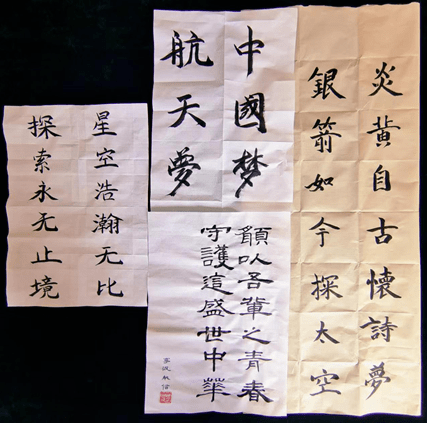 炎黃自古懷詩夢
銀箭如今探太空
中國梦
航天夢
願以吾輩之青春
守護這盛世中華
星空浩瀚无比
探索永无止境